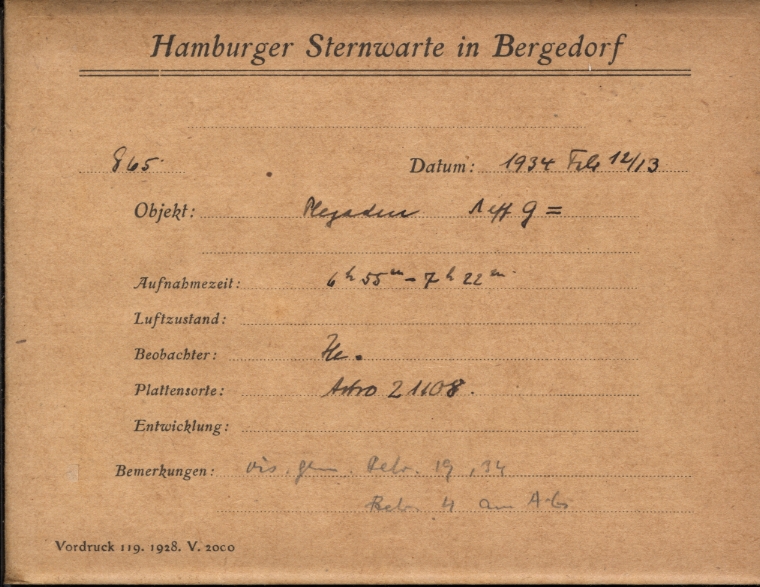 Hamburger Sternwarte in Bergedorf
865 Datum: 1934 Feb 12/13
Objekt: Plejaden
Aufnahmezeit: 6 h 55 m - 7 h 22 m
Luftzustand:
Beobachter: He.
Plattensorte: Astro 21108.
Entwicklung:
Bemerkungen: vis. gem. Febr. 19, 34
Vordruck 119. 1928. V. 2000